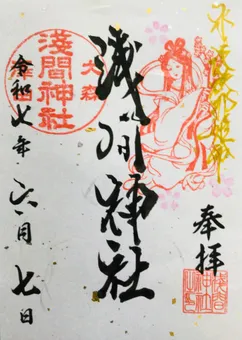 木花咲耶姫命
奉拝
浅间神社
大森
淺間神社
令和七年六月七日